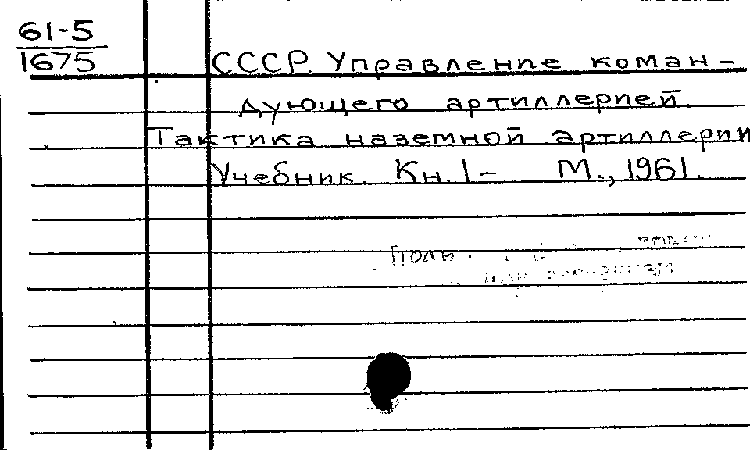 61-5
1675
СССР. Управление коман-
дующего артиллерией.
Тактика наземной артиллерии
Учебник. Кн. 1- М., 1961.